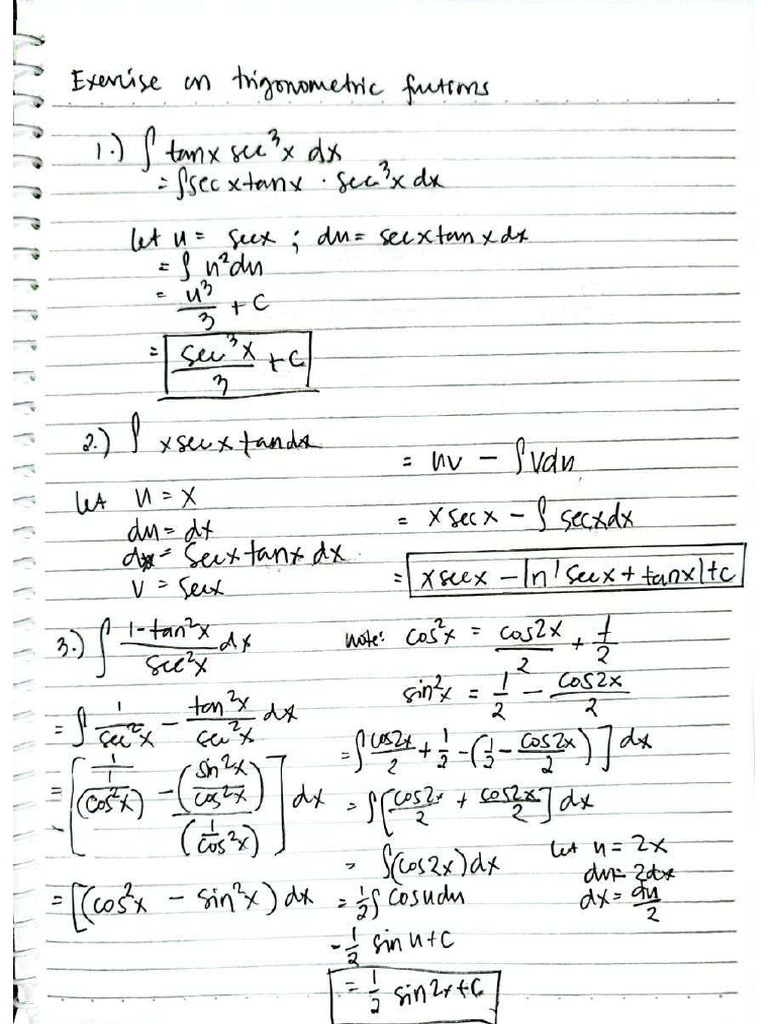 Exercise on trigonometric functions
1.) ∫ tanx sec³x dx
= ∫secxtanx · sec³x dx
let u = secx ; du = secxtanxdx
= ∫ u²du
= u³/3 + C
= sec³x/3 + C
2.) ∫ xsecxtandx
let u = x
du = dx
dv = secxtanxdx
v = secx
= uv − ∫vdu
= xsecx − ∫ secxdx
= xsecx − ln|secx + tanx| + C
3.) ∫ 1-tan²x/sec²x dx
= ∫ 1/sec²x − tan²x/sec²x dx
= [ (1/1)/(cos²x) − (sin²x/cos²x)/(1/cos²x) ] dx
= [(cos²x − sin²x) dx
note: cos²x = cos2x/2 + 1/2
sin²x = 1/2 − cos2x/2
= ∫cos2x/2 + 1/2 − (1/2 − cos2x/2)] dx
= ∫[cos2x/2 + cos2x/2] dx
= ∫(cos2x)dx
let u = 2x
du = 2dx
dx = du/2
= 1/2 ∫ cosudu
- 1/2 sin u+C
= 1/2 sin2x+C